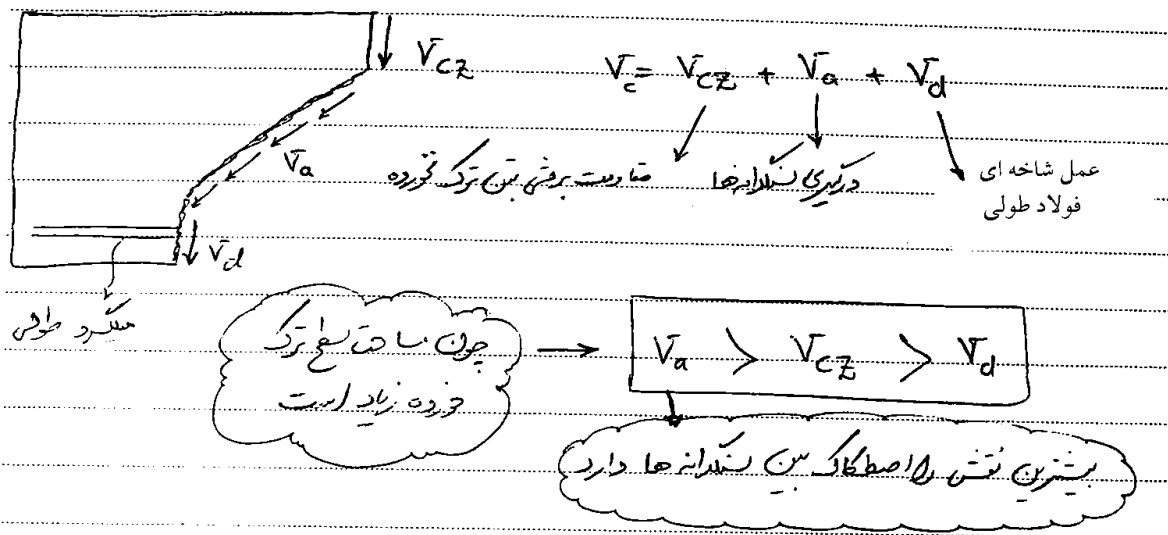 V_cz
V_c = V_cz + V_a + V_d
V_a
مقاومت برشی بتن ترک نخورده
درگیری سنگدانه‌ها
عمل شاخه ای
فولاد طولی
V_d
میلگرد طولی
چون مساحت سطح ترک
خورده زیاد است
V_a > V_cz > V_d
بیشترین نقش را اصطکاک بین سنگدانه ها دارد